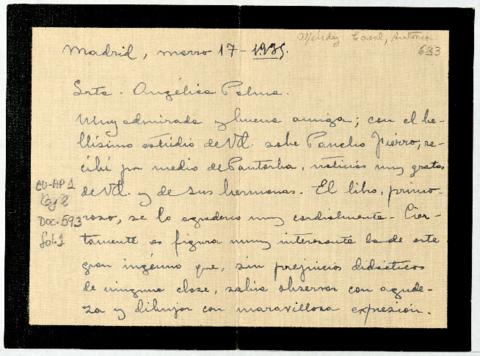 Méndez Casal, Antonio
633
Madrid, marzo 17 - 1935.
Srta. Angélica Palma.
Muy admirada y buena amiga; con el be-
llísimo estudio de Vd. sobre Pancho Fierro, re-
cibí por medio de Pantorba, noticias muy gratas
de Vd. y de sus hermanas. El libro, primo-
roso, se lo agradezco muy cordialmente. Cier-
tamente es figura muy interesante la de este
gran ingénuo que, sin prejuicios didácticos
de ninguna clase, sabía observar con agude-
za y dibujar con maravillosa expresión.
CD-AP 1
Caj 8
Doc. 593
fol. 1